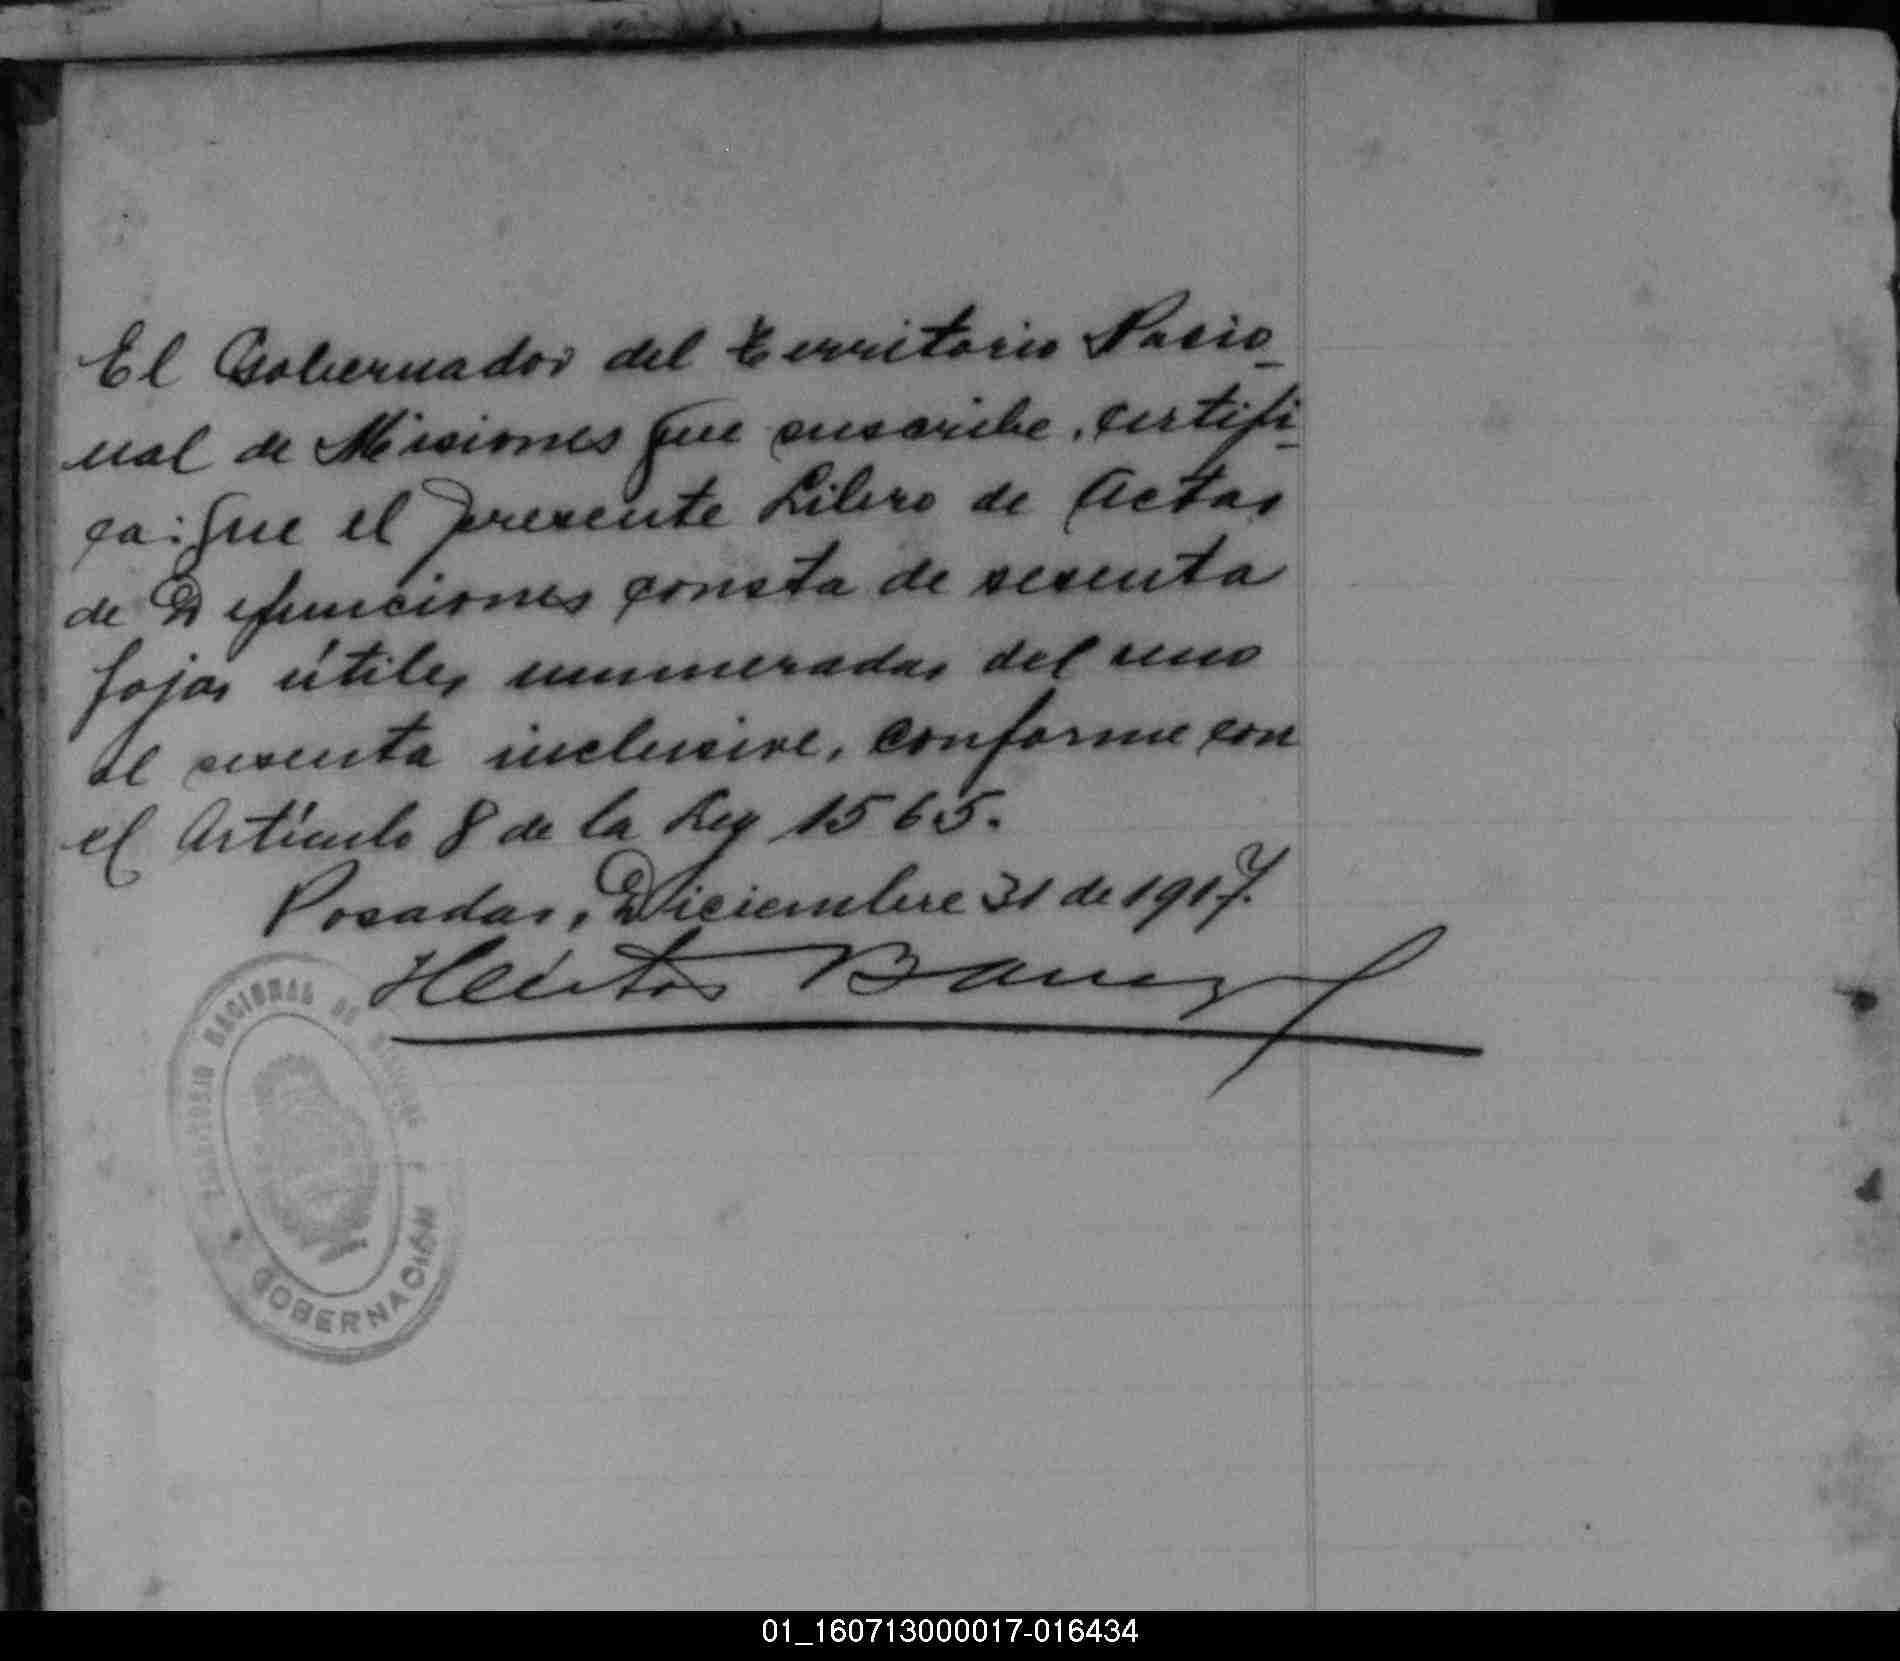 El Gobernador del territorio Nacio_
nal de Misiones que suscribe, certifi_
ca: que el presente Libro de Actas
de Defunciones consta de sesenta
fojas útiles numeradas del uno
al sesenta inclusive, conforme con
el Artículo 8 de la Ley 1565.
Posadas, Diciembre 31 de 1917.
TERRITORIO NACIONAL DE MISIONES
GOBERNACIÓN
01_160713000017-016434